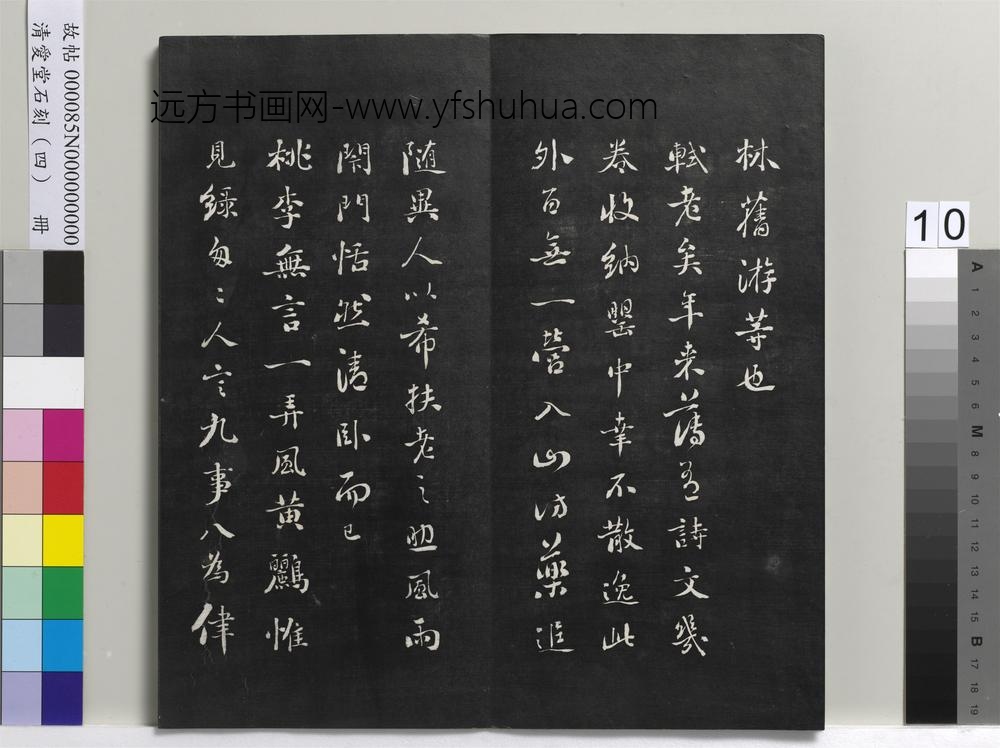 林舊游等也
軾老矣年來薄有詩文幾
卷收納罌中幸不散逸此
外百無一營入山訪藥追
隨異人以希扶老之助風雨
閉門恬然清臥而已
桃李無言一弄風黃鸝惟
見綠匆〻人言九事八為律
远方书画网-www.yfshuhua.com
故帖 000085N000000000
清愛堂石刻（四） 冊
10
A 1 2 3 4 5 6 M 8 9 10 11 12 13 14 15 B 17 18 19